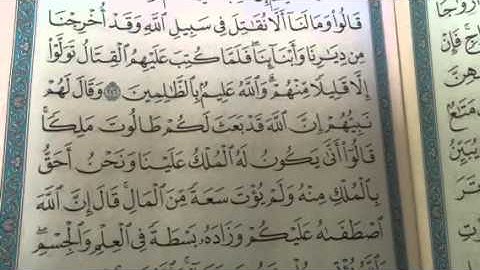 قَالُوا۟ وَمَا لَنَآ أَلَّا نُقَٰتِلَ فِى سَبِيلِ ٱللَّهِ وَقَدْ أُخْرِجْنَا
مِن دِيَٰرِنَا وَأَبْنَآئِنَا ۖ فَلَمَّا كُتِبَ عَلَيْهِمُ ٱلْقِتَالُ تَوَلَّوْا۟
إِلَّا قَلِيلًا مِّنْهُمْ ۗ وَٱللَّهُ عَلِيمٌۢ بِٱلظَّٰلِمِينَ ﴿٢٤٦﴾ وَقَالَ لَهُمْ
نَبِيُّهُمْ إِنَّ ٱللَّهَ قَدْ بَعَثَ لَكُمْ طَالُوتَ مَلِكًا ۚ
قَالُوٓا۟ أَنَّىٰ يَكُونُ لَهُ ٱلْمُلْكُ عَلَيْنَا وَنَحْنُ أَحَقُّ
بِٱلْمُلْكِ مِنْهُ وَلَمْ يُؤْتَ سَعَةً مِّنَ ٱلْمَالِ ۚ قَالَ إِنَّ ٱللَّهَ
ٱصْطَفَىٰهُ عَلَيْكُمْ وَزَادَهُۥ بَسْطَةً فِى ٱلْعِلْمِ وَٱلْجِسْمِ ۖ